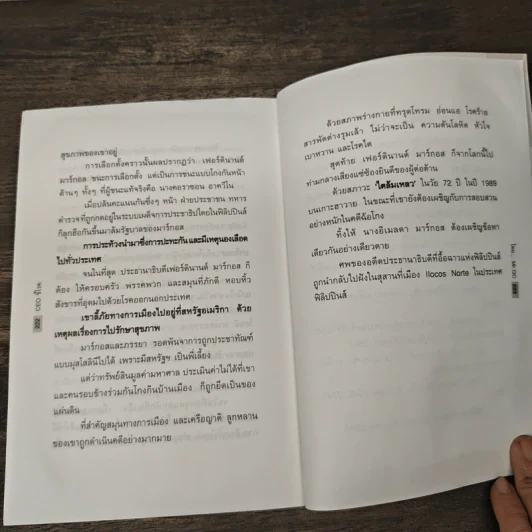 สุขภาพของเขาอยู่
การเลือกตั้งคราวนั้นผลปรากฏว่า เฟอร์ดินานด์
มาร์กอส ชนะการเลือกตั้ง แต่เป็นการชนะแบบโกงกันหน้า
ด้านๆ ทั้งๆ ที่ผู้ชนะแท้จริงคือ นางคอราซอน อาควิโน
เมื่อปล้นคะแนนกันซึ่งๆ หน้า ฝ่ายประชาชน ทหาร
ตำรวจที่ถูกกดอยู่ในระบบเผด็จการประชาธิปไตยในฟิลิปปินส์
ก็ลุกฮือกันขึ้นมาล้มรัฐบาลของมาร์กอส
การประท้วงนำมาซึ่งการปะทะกัน และมีเหตุนองเลือด
ไปทั่วประเทศ
จนในที่สุด ประธานาธิบดีเฟอร์ดินานด์ มาร์กอส ก็
ต้อง ให้ครอบครัว พรรคพวก และสมุนที่ภักดี หอบหิ้ว
สังขารที่อุดมไปด้วยโรคออกนอกประเทศ
เขาลี้ภัยทางการเมืองไปอยู่ที่สหรัฐอเมริกา ด้วย
เหตุผลเรื่องการไปรักษาสุขภาพ
มาร์กอสและภรรยา รอดพ้นจากการถูกประชาทัณฑ์
แบบมุสโสลินีไปได้ เพราะมีสหรัฐฯ เป็นพี่เลี้ยง
แต่ว่าทรัพย์สินมูลค่ามหาศาล ประเมินค่าไม่ได้ที่เขา
และคนรอบข้างร่วมกันโกงกินบ้านเมือง ก็ถูกยึดเป็นของ
แผ่นดิน
ที่สำคัญสมุนทางการเมือง และเครือญาติ ลูกหลาน
ของเขาถูกดำเนินคดีอย่างมากมาย
202 CEO ขี้โรค
ด้วยสภาพร่างกายที่ทรุดโทรม อ่อนแอ โรคร้าย
สารพัดต่างรุมเล้า ไม่ว่าจะเป็น ความดันโลหิต หัวใจ
เบาหวาน และโรคไต
สุดท้าย เฟอร์ดินานด์ มาร์กอส ก็จากโลกนี้ไป
ท่ามกลางเสียงแซ่ซ้องยินดีของผู้ต่อต้าน
ด้วยสภาวะ "ไตล้มเหลว" ในวัย 72 ปี ในปี 1989
บนเกาะฮาวาย ในขณะที่เขายังต้องเผชิญกับการสอบสวน
อย่างหนักในคดีฉ้อโกง
ทิ้งให้ นางอิเมลดา มาร์กอส ต้องเผชิญข้อหา
เดียวกันอย่างเดียวดาย
ศพของอดีตประธานาธิบดีที่อื้อฉาวแห่งฟิลิปปินส์
ถูกนำกลับไปฝังในสุสานที่เมือง Ilocos Norte ในประเทศ
ฟิลิปปินส์